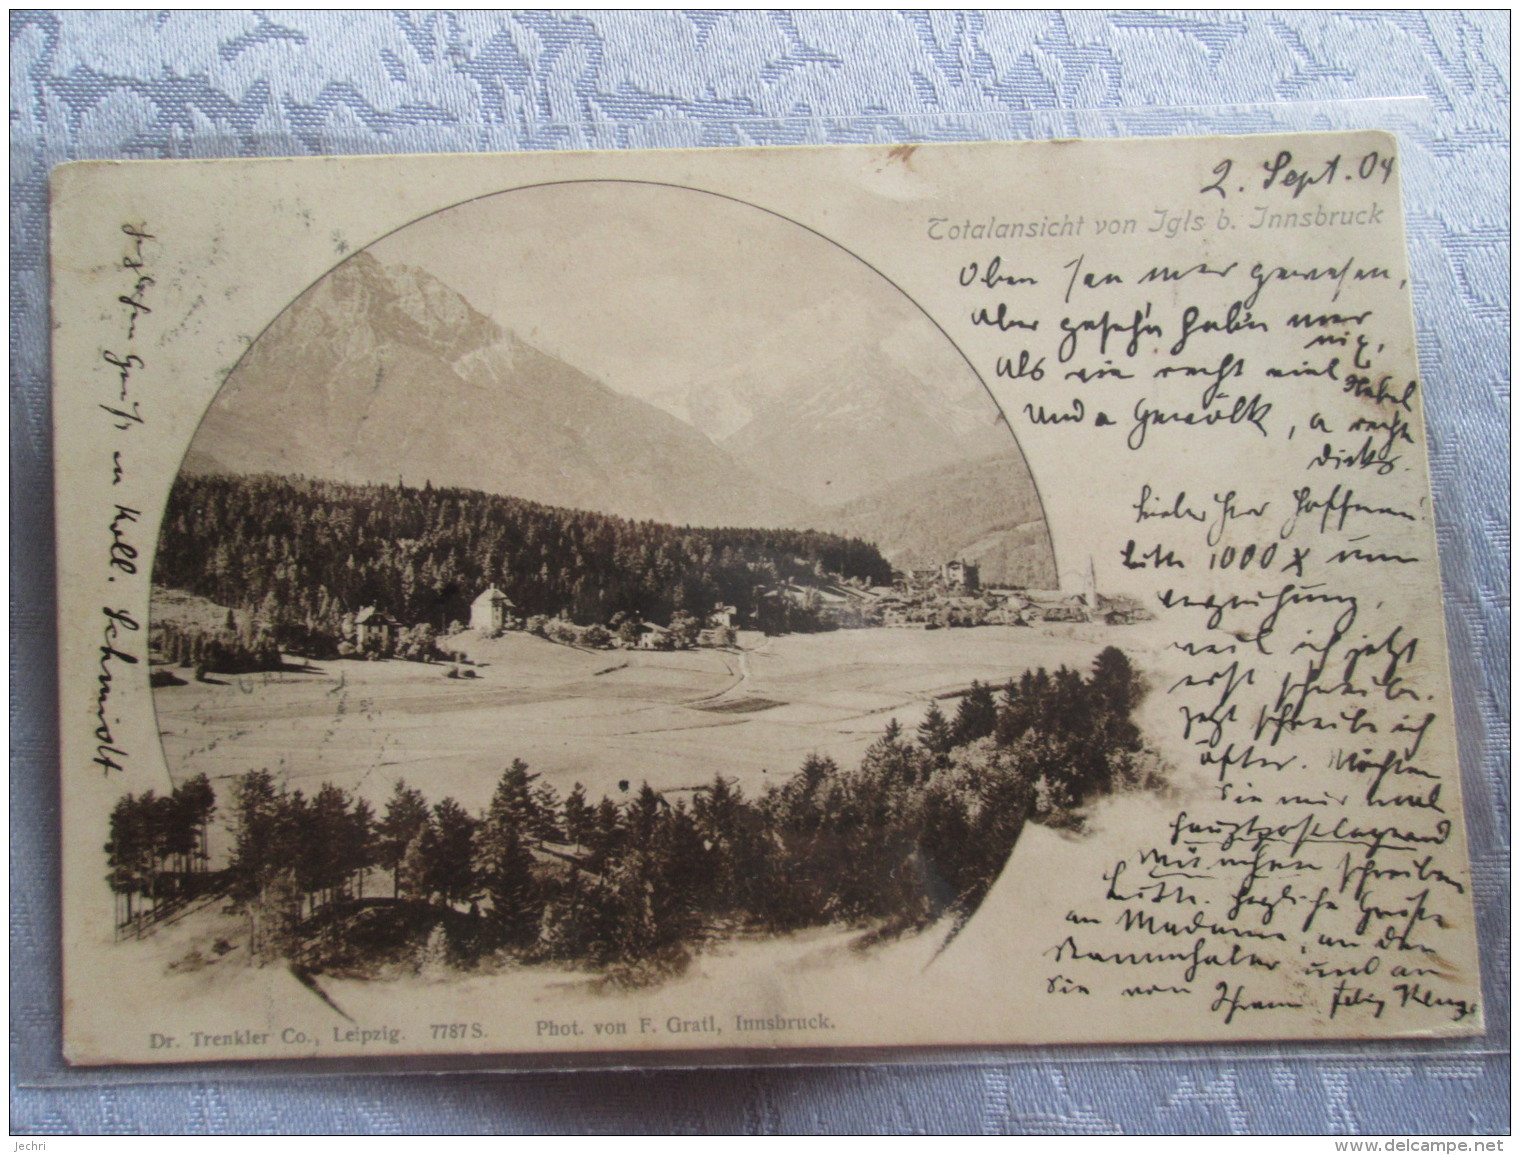 2. Sept. 04
Totalansicht von Igls b. Innsbruck
Oben san mer gewesen,
aber geseh'n habn mer
nix,
als wie recht viel Nebel
und a Gewölk, a recht
dicks.
Lieber Herr Hoffmann
bitte 1000 x um
Verzeihung,
weil ich jetzt
erst schreibe.
Jetzt schreibe ich
öfter. Möchten
Sie mir mal
hauptpostlagernd
München schreiben
bitte. Herzliche Grüße
an Madame, an den
Stammhalter und an
Sie von Ihrem Felix
Gruß
Koll. Schmidt
Dr. Trenkler Co., Leipzig. 7787 S. Phot. von F. Gratl, Innsbruck.
jechri
www.delcampe.net